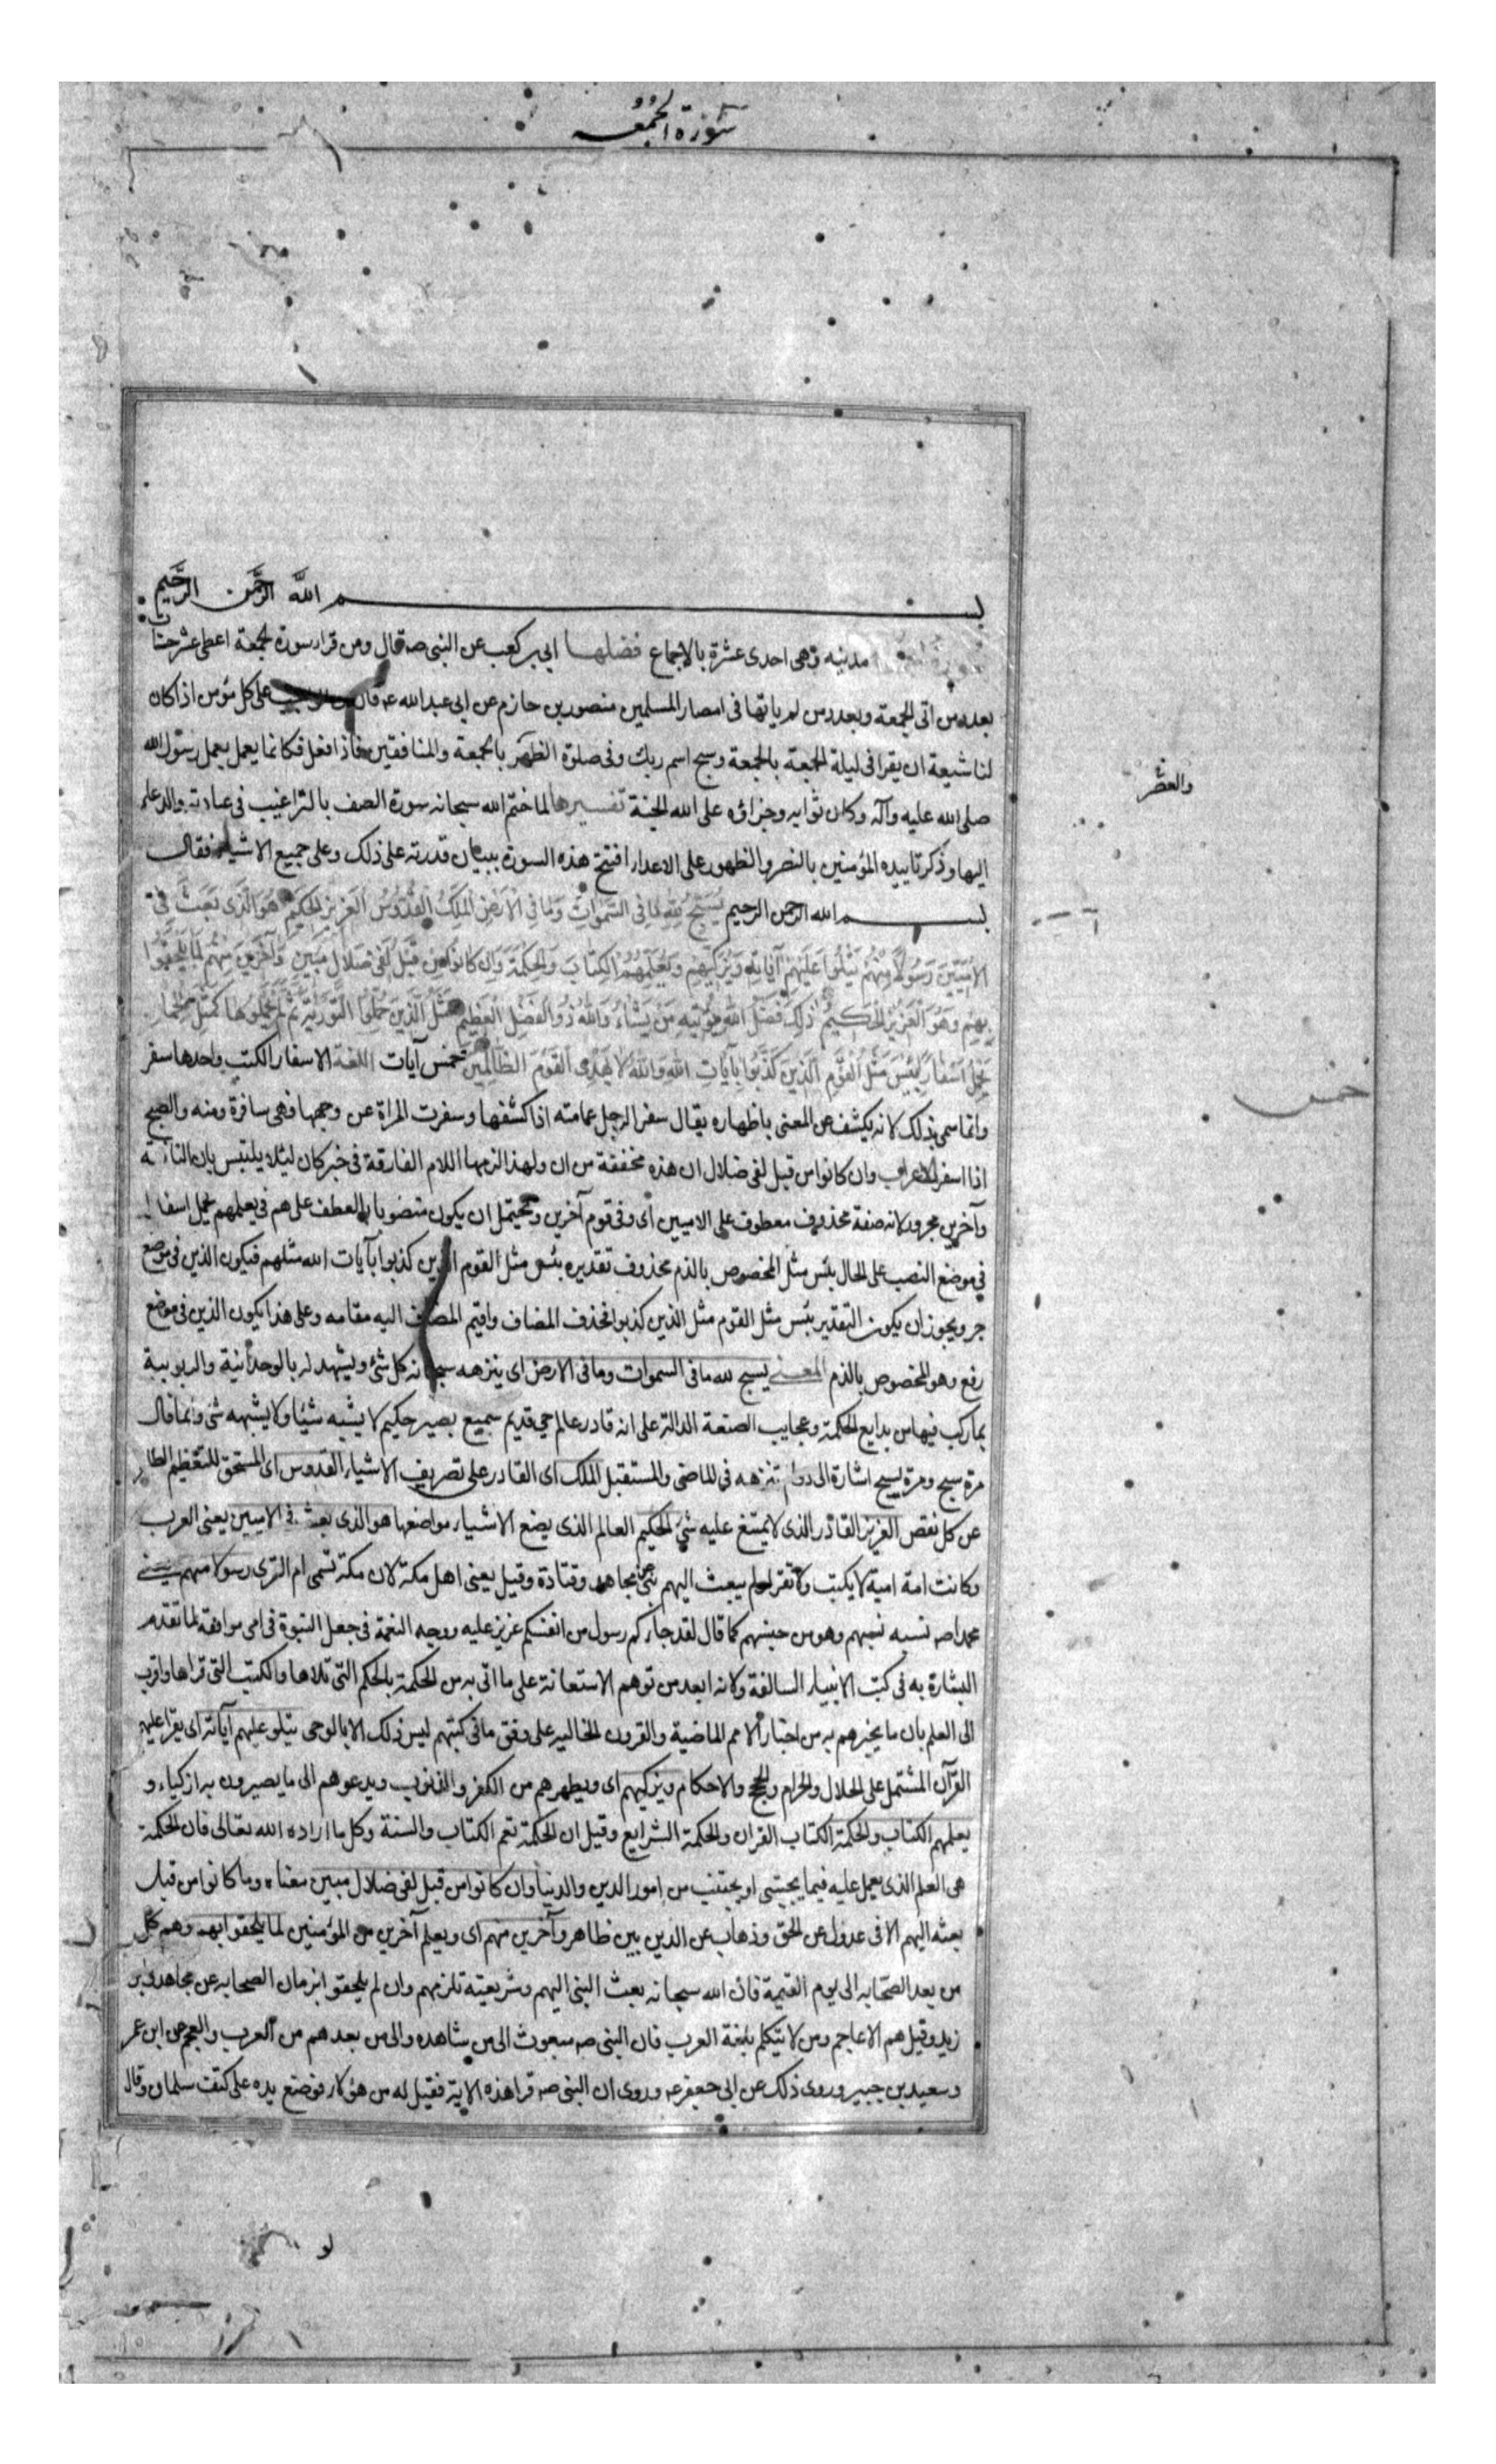 سورة الجمعه
بسم الله الرحمن الرحيم
مدنيه وهى احدى عشرة بالاجماع فضلها ابي بن كعب عن النبى صه قال ومن قرا سورة الجمعة اعطى عشر حسنات
بعدد من اتى الجمعة وبعدد من لم ياتها فى امصار المسلمين منصور بن حازم عن ابى عبد الله عه قال من الواجب على كل مؤمن اذا كان
لنا شيعة ان يقرا فى ليلة الجمعة بالجمعة وسبح اسم ربك وفى صلوة الظهر بالجمعة والمنافقين فاذا فعل فكانما يعمل بعمل رسول الله
صلى الله عليه وآله وكان ثوابه وجزاؤه على الله الجنة تفسيرها لما ختم الله سبحانه سورة الصف بالترغيب فى عبادته والدعاء
اليها وذكر تاييده المؤمنين بالنصر والظهور على الاعداء افتتح هذه السورة ببيان قدرته على ذلك وعلى جميع الاشياء فقال
بسم الله الرحمن الرحيم يُسَبِّحُ لِلّهِ مَا فِي السَّمٰوَاتِ وَمَا فِي الْاَرْضِ الْمَلِكِ الْقُدُّوسِ الْعَزِيزِ الْحَكِيمِ هُوَ الَّذِى بَعَثَ فِي
الْاُمِّيِّينَ رَسُولًا مِنْهُمْ يَتْلُوا عَلَيْهِمْ آيَاتِهِ وَيُزَكِّيهِمْ وَيُعَلِّمُهُمُ الْكِتَابَ وَالْحِكْمَةَ وَاِنْ كَانُوا مِنْ قَبْلُ لَفِى ضَلَالٍ مُبِينٍ وَآخَرِينَ مِنْهُمْ لَمَّا يَلْحَقُوا
بِهِمْ وَهُوَ الْعَزِيزُ الْحَكِيمُ ذٰلِكَ فَضْلُ اللهِ يُؤْتِيهِ مَنْ يَشَاءُ وَاللهُ ذُو الْفَضْلِ الْعَظِيمِ مَثَلُ الَّذِينَ حُمِّلُوا التَّوْرٰيةَ ثُمَّ لَمْ يَحْمِلُوهَا كَمَثَلِ الْحِمَارِ
يَحْمِلُ اَسْفَارًا بِئْسَ مَثَلُ الْقَوْمِ الَّذِينَ كَذَّبُوا بِآيَاتِ اللهِ وَاللهُ لَا يَهْدِى الْقَوْمَ الظَّالِمِينَ خمس آيات اللغة الاسفار الكتب واحدها سفر
وانما سمى بذلك لانه يكشف عن المعنى باظهاره يقال سفر الرجل عمامته اذا كشفها وسفرت المراة عن وجهها فهى سافرة ومنه والصبح
اذا اسفر الاعراب وان كانوا من قبل لفى ضلال ان هذه مخففة من ان ولهذا الزمها اللام الفارقة فى خبر كان ليلا يلتبس بان النافية
وآخرين مجرور لانه صفة محذوف معطوف على الاميين اى وفى قوم آخرين ويحتمل ان يكون منصوبا بالعطف على هم فى يعلمهم يحمل اسفارا
فى موضع النصب على الحال بئس مثل المخصوص بالذم محذوف تقديره بئس مثل القوم الذين كذبوا بآيات الله مثلهم فيكون الذين فى موضع
جر ويجوز ان يكون التقدير بئس مثل القوم مثل الذين كذبوا فحذف المضاف واقيم المضاف اليه مقامه وعلى هذا يكون الذين فى موضع
رفع وهو المخصوص بالذم المعنى يسبح لله ما فى السموات وما فى الارض اى ينزهه سبحانه كل شئ ويشهد له بالوحدانية والربوبية
بما ركب فيها من بدايع الحكمة وعجايب الصنعة الدالة على انه قادر عالم حى قديم سميع بصير حكيم لا يشبه شيئا ولا يشبهه شئ وانما قال
مرة سبح ومرة يسبح اشارة الى دوام تنزهه فى الماضى والمستقبل الملك اى القادر على تصريف الاشياء القدوس اى المستحق للتعظيم الطاهر
عن كل نقص العزيز القادر الذى لا يمتنع عليه شئ الحكيم العالم الذى يضع الاشياء مواضعها هو الذى بعث فى الاميين يعنى العرب
وكانت امة امية لا يكتب ولا تقرا ولم يبعث اليهم نبى عن مجاهد وقتادة وقيل يعنى اهل مكة لان مكة تسمى ام القرى رسولا منهم يعنى
محمدا صه نسبه نسبهم وهو من جنسهم كما قال لقد جاءكم رسول من انفسكم عزيز عليه ووجه النعمة فى جعل النبوة فى امى موافقة لما تقدم
البشارة به فى كتب الانبياء السالفة ولانه ابعد من توهم الاستعانة على ما اتى به من الحكمة بالحكم التى تلاها والكتب التى قراها واقرب
الى العلم بان ما يخبرهم به من اخبار الامم الماضية والقرون الخاليه على وفق ما فى كتبهم ليس ذلك الا بالوحى يتلو عليهم آياته اى يقرا عليهم
القرآن المشتمل على الحلال والحرام والحجج والاحكام ويزكيهم اى ويطهرهم من الكفر والذنوب ويدعوهم الى ما يصيرون به ازكياء و
يعلمهم الكتاب والحكمة الكتاب القران والحكمة الشرايع وقيل ان الحكمة تعم الكتاب والسنة وكل ما اراده الله تعالى فان الحكمة
هى العلم الذى يعمل عليه فيما يجتبى او يجتنب من امور الدين والدنيا وان كانوا من قبل لفى ضلال مبين معناه وما كانوا من قبل
بعثه اليهم الا فى عدول عن الحق وذهاب عن الدين بين ظاهر وآخرين منهم اى ويعلم آخرين من المؤمنين لما يلحقوا بهم وهم كل
من بعد الصحابه الى يوم القيمة فان الله سبحانه بعث النبى اليهم وشريعته تلزمهم وان لم يلحقوا بزمان الصحابه عن مجاهد وابن
زيد وقيل هم الاعاجم ومن لا يتكلم بلغة العرب فان النبى صه مبعوث الى من شاهده والى من بعدهم من العرب والعجم عن ابن عمر
وسعيد بن جبير وروى ذلك عن ابى جعفر عه وروى ان النبى صه قرا هذه الاية فقيل له من هؤلاء فوضع يده على كتف سلمان وقال
والعشر
خمس